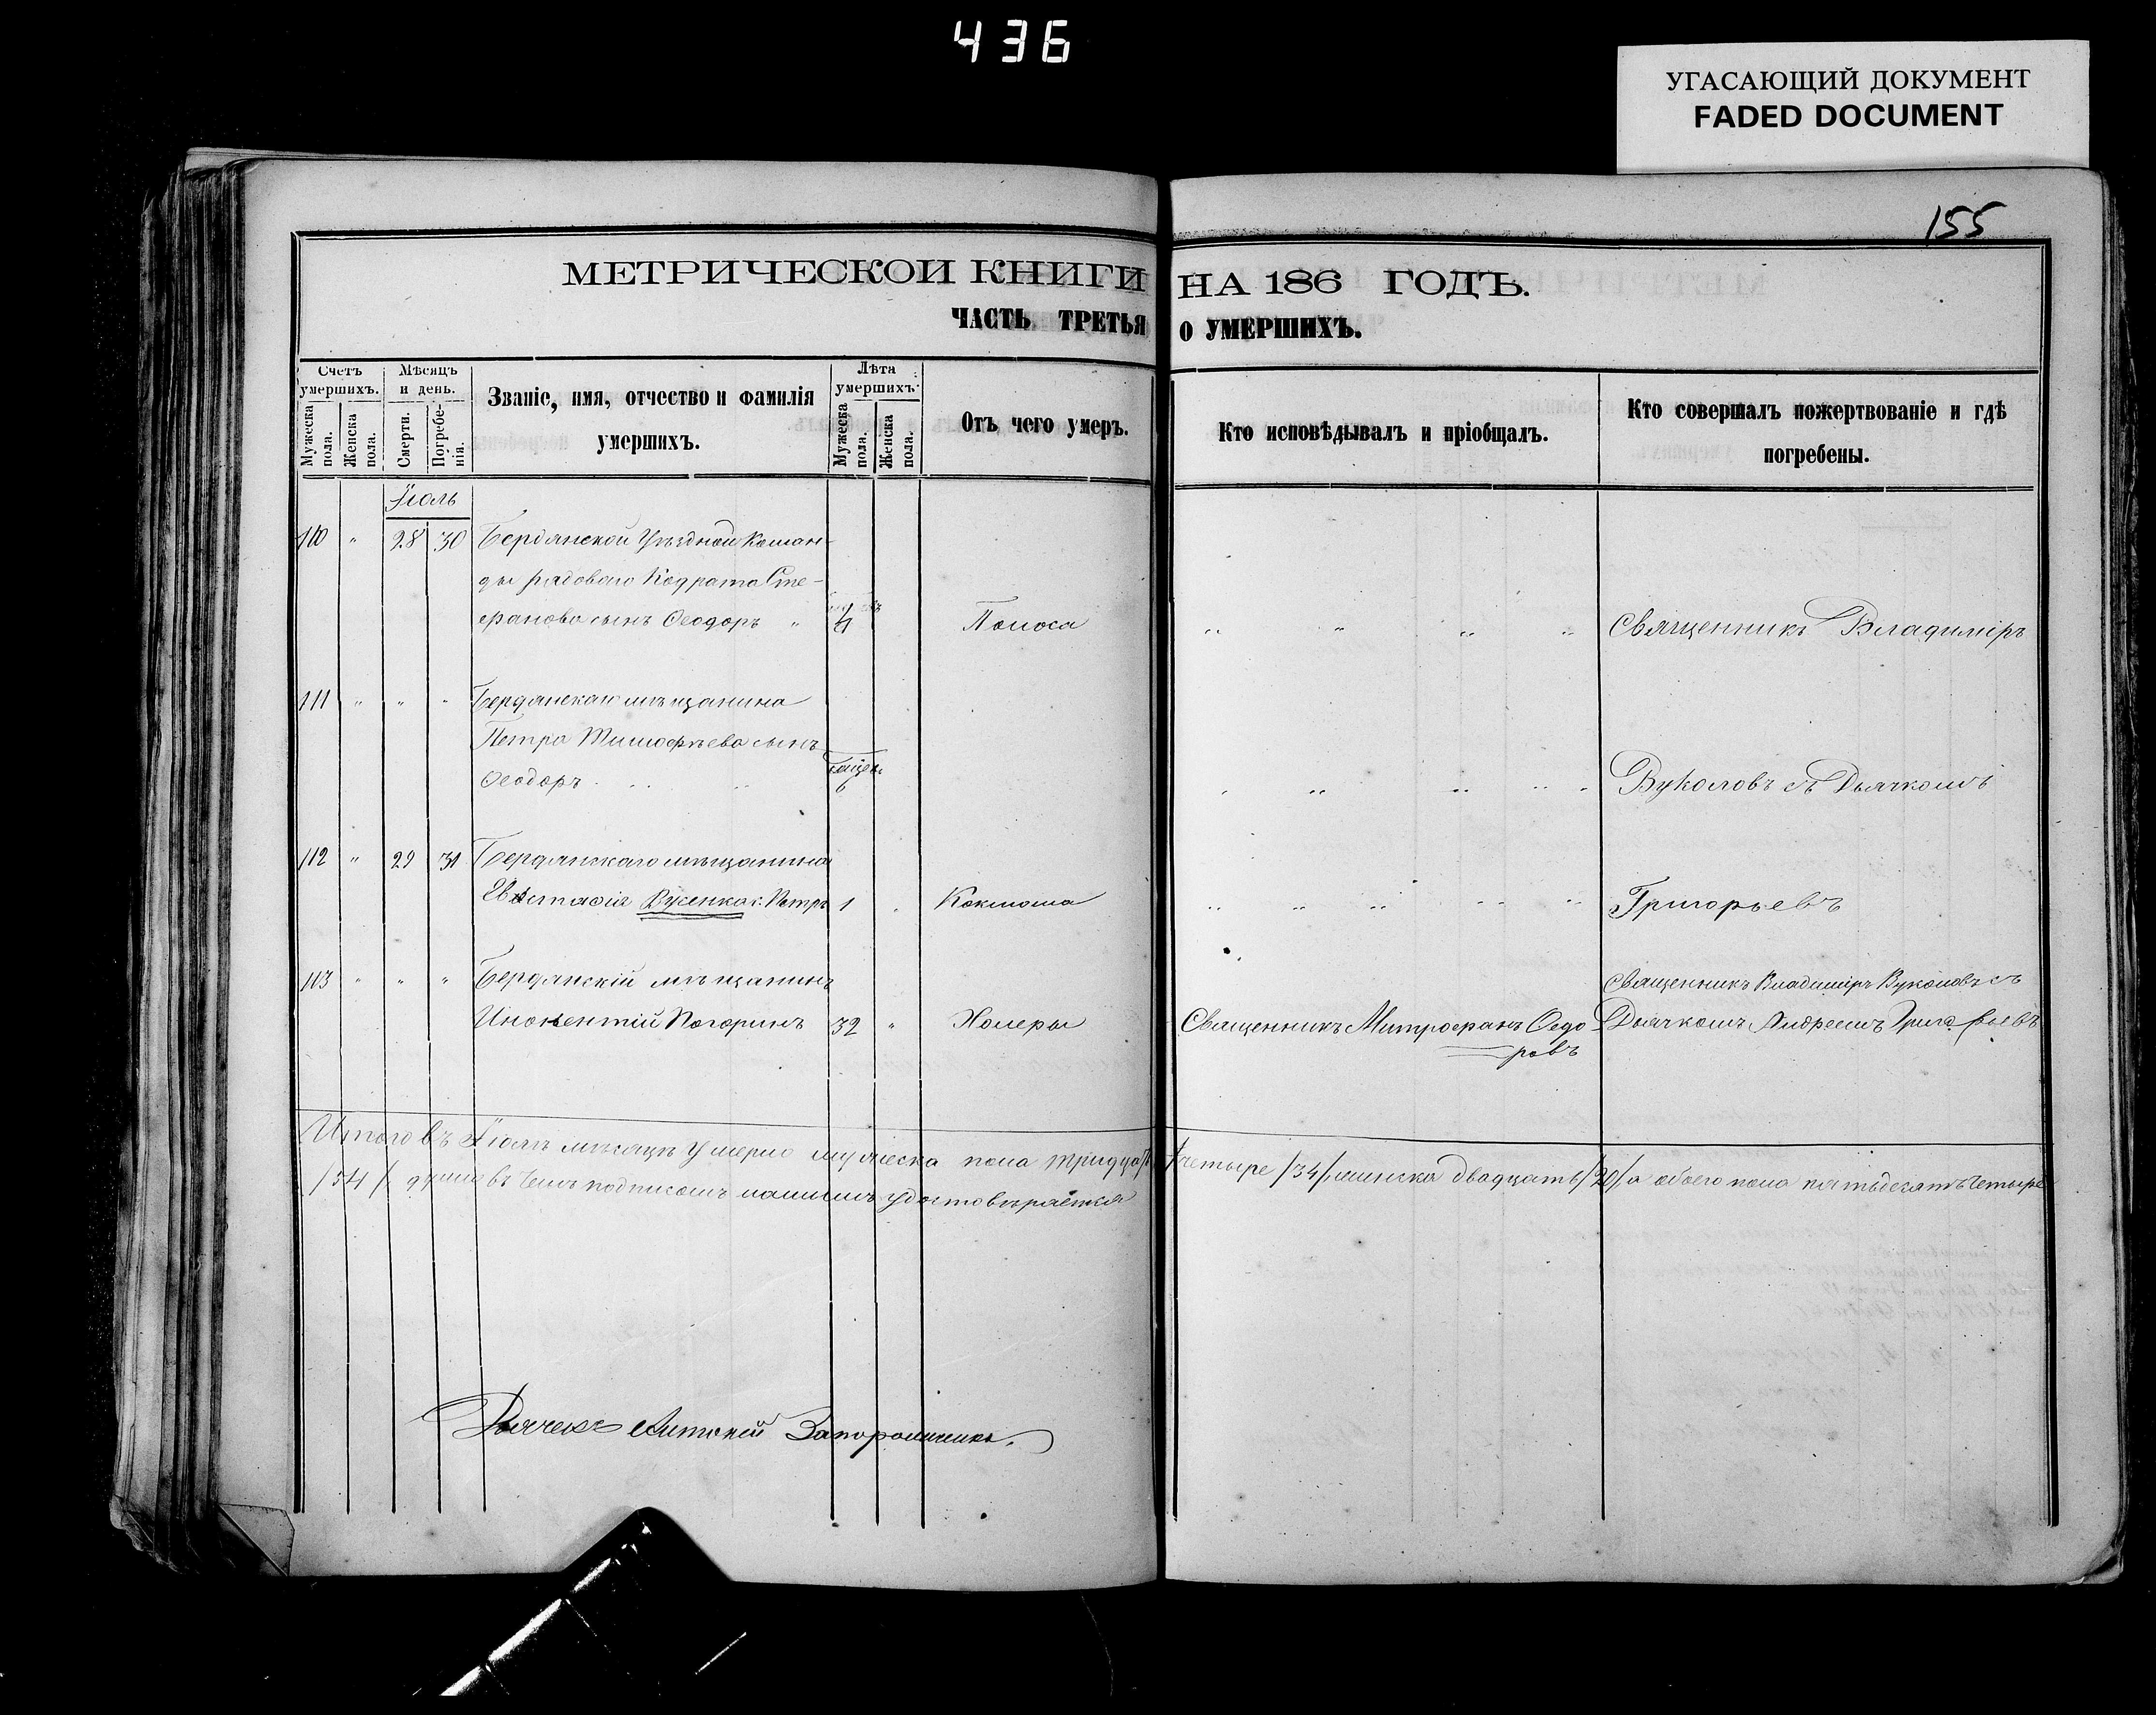 436
УГАСАЮЩИЙ ДОКУМЕНТ
FADED DOCUMENT
155
МЕТРИЧЕСКОИ КНИГИ НА 186 ГОДЪ.
ЧАСТЬ ТРЕТЬЯ О УМЕРШИХЪ.
Счетъ умершихъ.
Мужеска пола.
Женска пола.
Мѣсяцъ и день.
Смерти.
Погребенія.
Званіе, имя, отчество и фамилія умершихъ.
Лѣта умершихъ.
Мужеска пола.
Женска пола.
Отъ чего умеръ.
Кто исповѣдывалъ и пріобщалъ.
Кто совершалъ пожертвованіе и гдѣ погребены.
Іюль
110 " 28 30 Бердянской Уѣздной Коман-
ды рядоваго Кодрата Сте-
фанова сынъ Ѳеодоръ " Поноса Священникъ Владиміръ
111 " " " Бердянскаго мѣщанина
Петра Тимофѣева сынъ
Ѳеодоръ Вуколовъ съ Дьячкомъ
112 " 29 31 Бердянскаго мѣщанина
Евстафія Вусенка с. Петръ 1 Коклюша Григорьевъ
113 " " " Бердянскій мѣщанинъ Священникъ Владиміръ Вуколовъ съ
Инокентій Погоринъ 32 " Холеры Священникъ Митрофанъ Ѳедо Дьячкомъ Андреемъ Григорьевъ
ровъ
Итого въ Іюлѣ мѣсяцѣ Умерло мужеска пола тридцать четыре /34/ женска двадцать /20/ а обоего пола пятьдесятъ четыре
/54/ души въ чемъ подписомъ нашимъ удостовѣряется
Дьячекъ Антоній Запорожченко.